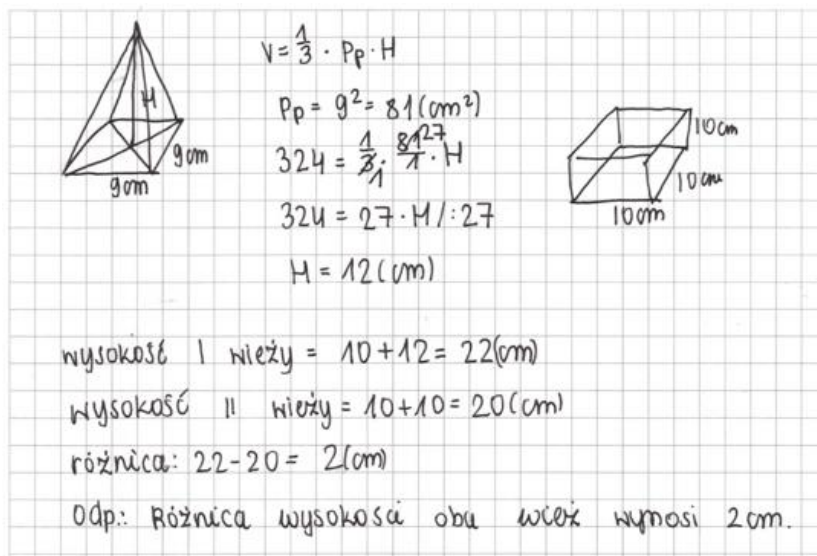 V = 1/3 · Pp · H
H
9cm
9cm
Pp = 9² = 81 (cm²)
324 = 1/3 1 · 81 27/1 · H
324 = 27 · H /:27
H = 12 (cm)
10cm
10cm
10cm
wysokość I wieży = 10+12 = 22(cm)
wysokość II wieży = 10+10 = 20(cm)
różnica: 22-20 = 2(cm)
Odp.: Różnica wysokości obu wież wynosi 2cm.